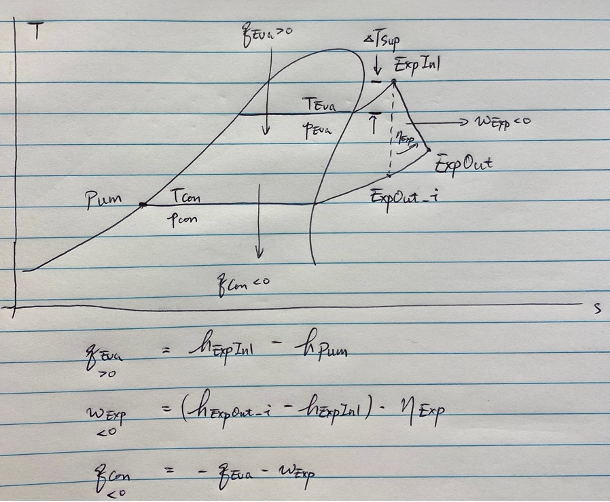 T
q_Eva>0
ΔTsup
ExpInl
T_Eva
p_Eva
w_Exp<0
η_Exp
ExpOut
ExpOut_i
Pum
T_Con
p_con
q_Con<0
s
q_Eva = h_ExpInl - h_Pum
>0
w_Exp = (h_ExpOut_i - h_ExpInl) · η_Exp
<0
q_Con = - q_Eva - w_Exp
<0